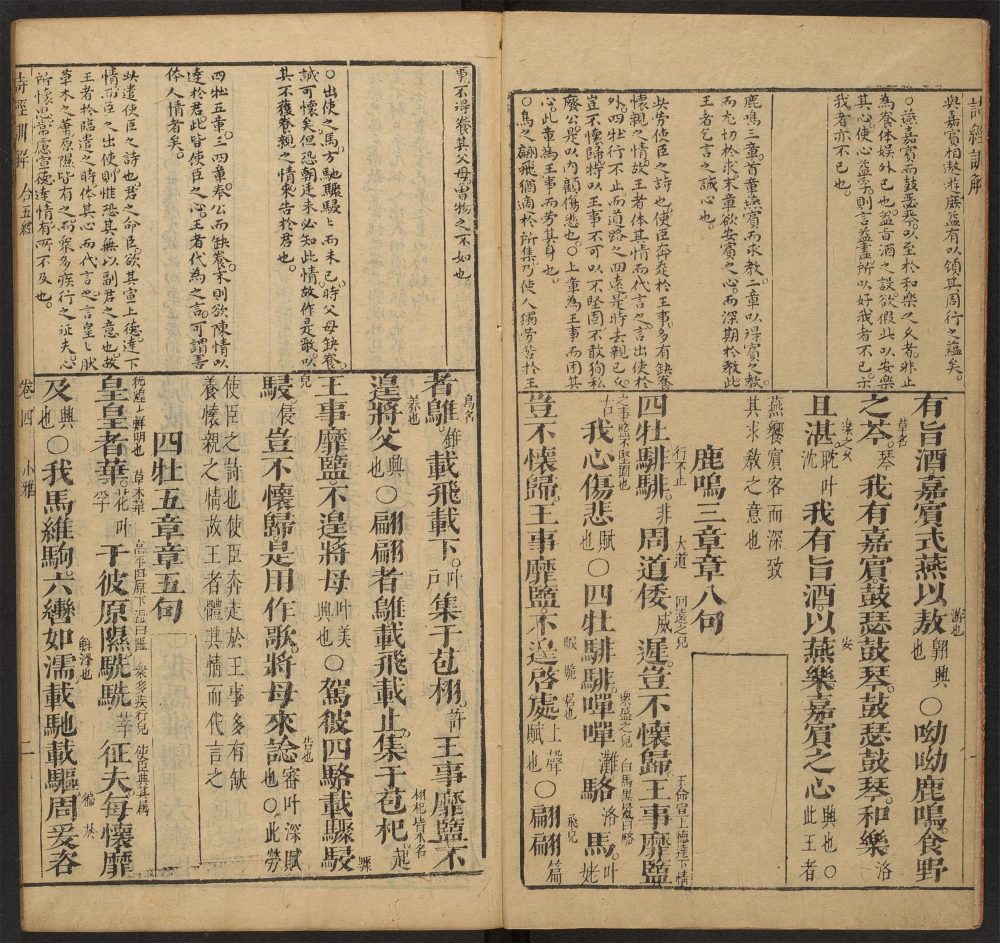 詩經訓解
與嘉賓相遨遊庶益有以領其周行之蘊矣。
○燕嘉賓而鼓瑟琴以至於和樂之久者非止
為養体娛外已也盖旨酒之設欲假此以安樂
其心使心益孚則言益盡所以好我者不已亦
我者亦不已也。
鹿鳴三章首章燕賓而求教二章以得賓之教
而尤切於求末章欲安賓之心而深期於教此
王者乞言之誠心也。
此勞使臣之詩也使臣奔走於王事多有缺養
懷親之情故王者体其情而代言之言出使於
外四牡行不止而道路之回遠是時去親已久
豈不懷歸特以王事不可以不堅固不敢狥私
廢公是以内顧傷悲也○上章為王事而困其
心此章為王事而勞其身也
○鳥之翩飛猶適於所集乃使人獨勞苦於王
有旨酒嘉賓式燕以敖游也翺興也○呦呦鹿鳴食野
之芩草名琴我有嘉賓鼓瑟鼓琴鼓瑟鼓琴和樂洛
且湛樂之久躭叶沈我有旨酒以燕樂嘉賓之心安興也○此王者
燕饗賓客而深致
其求教之意也
鹿鳴三章章八句
四牡騑騑行不止非周道倭大道威遲回遠之皃豈不懷歸王事靡盬
古我心傷悲賦也○四牡騑騑嘽嘽灘駱洛馬叶姥
豈不懷歸王事靡盬不遑啓處上聲賦也○翩翩飛皃篇
事不得養其父母曽物之不如也
○出使之馬方馳驟駸駸而未已時父母缺養
誠可懷矣但恐朝廷未必知此情故作是歌以
其不獲養親之情來告於君也。
四牡五章三四章奉公而缺養末則欲陳情以
達於君此皆使臣之心王者代為之言可謂善
体人情者矣。
此遣使臣之詩也君之命臣欲其宣上德達下
情而臣之出使則惟恐其無以副君之意也故
王者於臨遣之時体其心而代言之言皇皇然
草木之華原隰皆有之矣衆多疾行之征夫心
所懷思常慮宣德達情有所不及也。
者鵻鳥名錐載飛載下叶戸集于苞栩許王事靡盬不
遑將父養也興也○翩翩者鵻載飛載止集于苞杞栩杞皆木名起
王事靡盬不遑將母叶美興也○駕彼四駱載驟駸
駸侵豈不懷歸是用作歌將母來諗告也審叶深賦也○此勞
使臣之詩也使臣奔走於王事多有缺
養懷親之情故王者體其情而代言之
四牡五章章五句
皇皇者華草木華花叶于彼原隰高平曰原下濕曰隰駪駪衆多疾行皃莘征夫使臣與其屬每懷靡
及興也○我馬維駒六轡如濡鮮澤也載馳載驅周爰咨
詩經訓解 合五經
卷四 小雅 二